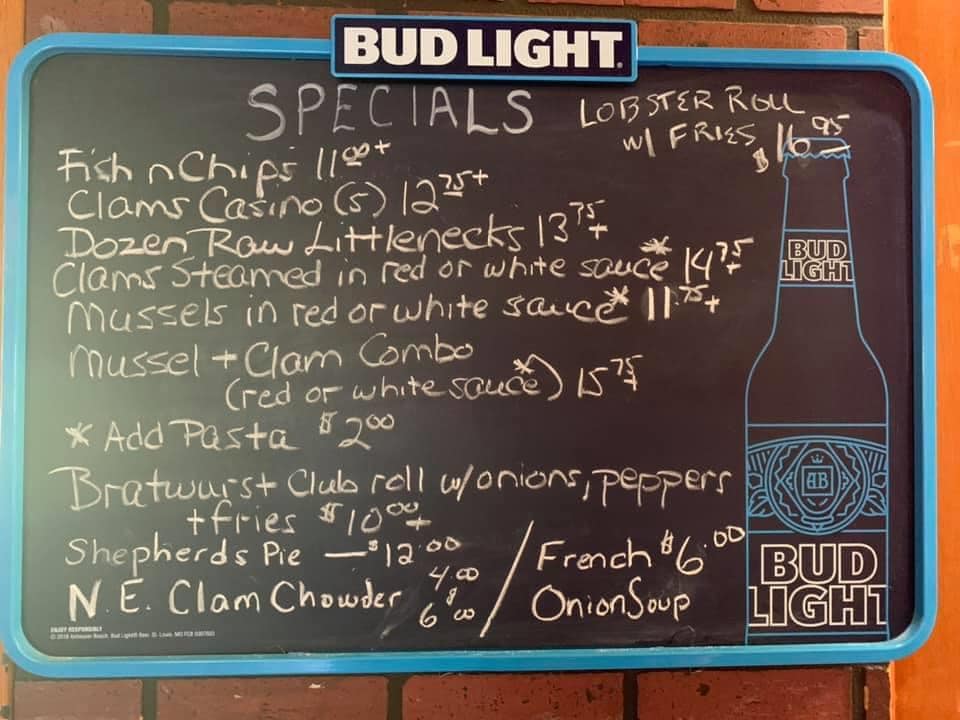 BUD LIGHT.
SPECIALS
LOBSTER ROLL
w/ FRIES $16.95
Fish n Chips 11.00+
Clams Casino (5) 12.75+
Dozen Raw Littlenecks 13.75+
Clams Steamed in red or white sauce* 14.75+
Mussels in red or white sauce* 11.75+
Mussel + Clam Combo
(red or white sauce*) 15.75+
* Add Pasta $2.00
Bratwurst Club roll w/onions, peppers
+fries $10.00+
Shepherds Pie — $12.00
N.E. Clam Chowder 4.00 / $6.00
French $6.00
Onion Soup
BUD
LIGHT
AB
BUD
LIGHT
ENJOY RESPONSIBLY